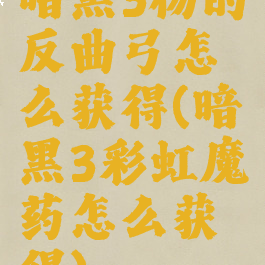 暗黑3杨的
反曲弓怎
么获得(暗
黑3彩虹魔
药怎么获
得)